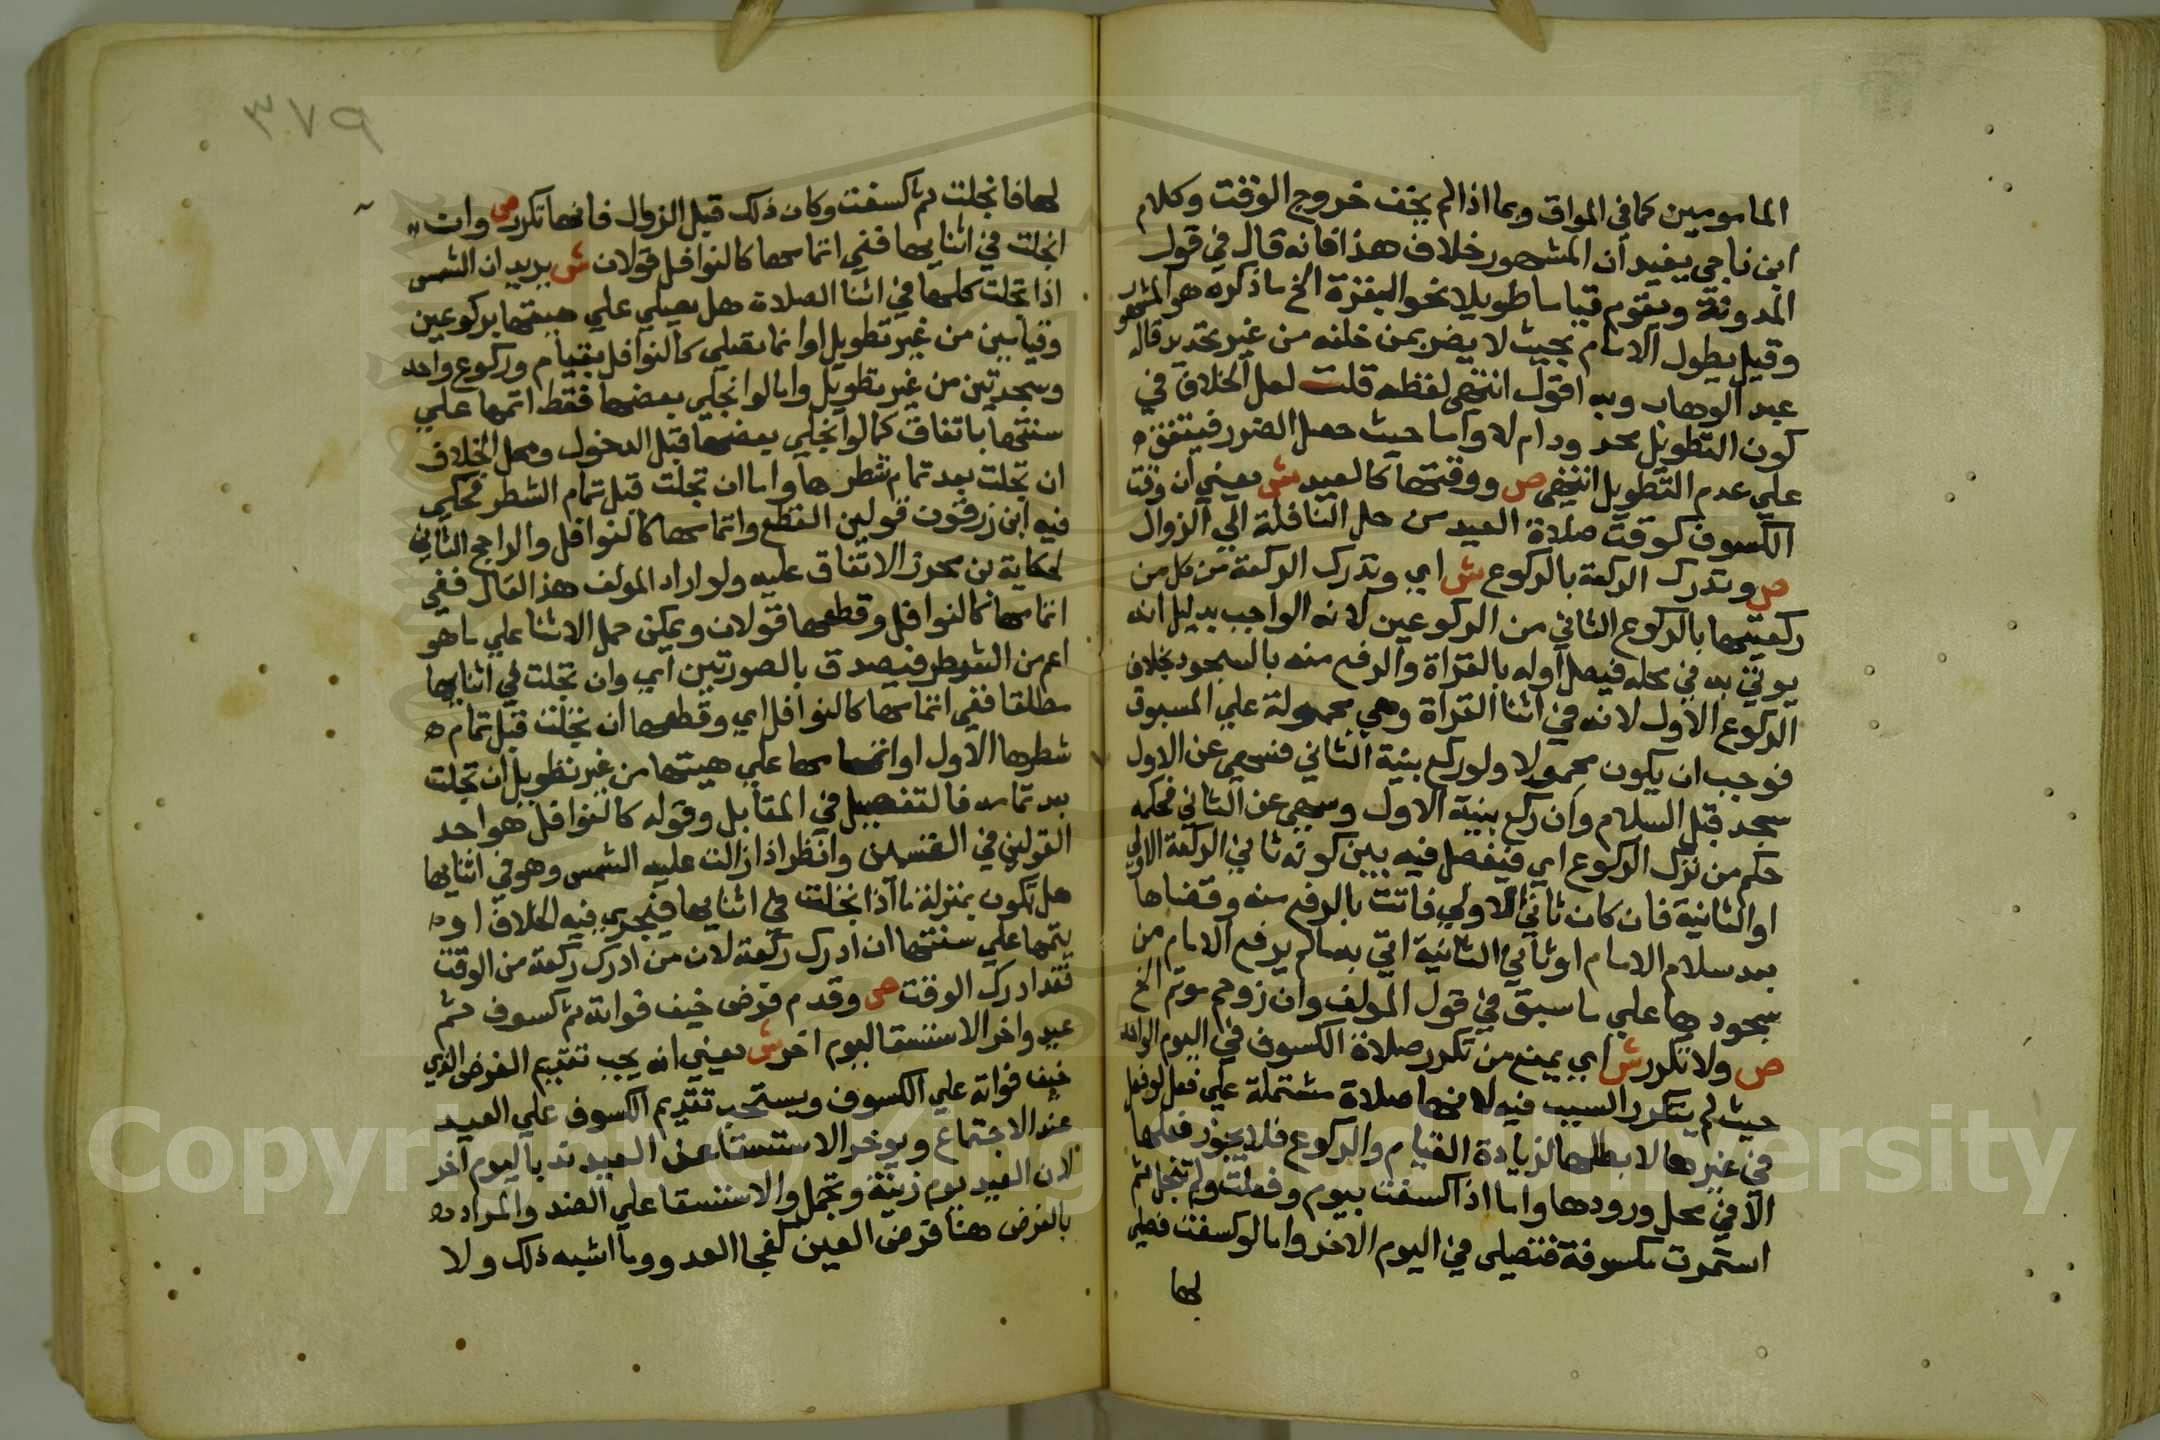 المامومين كما في المواق وبما اذا لم يخف خروج الوقت وكلام
ابن ناجي يفيد ان المشهور خلاف هذا فانه قال في قول
المدونة ويقوم قياما طويلا نحو البقرة الخ ما ذكره هو المشهور
وقيل يطول الامام بحيث لا يضر بمن خلفه من غير تحديد قاله
عبد الوهاب وبه اقول انتهى لفظه قلت لعل الخلاف في
كون التطويل محدودا ام لا واما حيث حصل الضرر فيتفق
علي عدم التطويل انتهى ص ووقتها كالعيد ش يعني ان وقت
الكسوف كوقت صلاة العيد من حل النافلة الي الزوال
ص وتدرك الركعة بالركوع ش اي وتدرك الركعة من كل من
ركعتيها بالركوع الثاني من الركوعين لانه الواجب بدليل انه
يوتي به في محله فيصل اوله بالقراة والرفع منه بالسجود بخلاف
الركوع الاول لانه في اثنا القراة وهي محمولة علي المسبوق
فوجب ان يكون محمولا ولو ركع بنية الثاني فسهي عن الاول
سجد قبل السلام وان ركع بنية الاول وسهي عن الثاني فحكمه
حكم من ترك الركوع اي فيفصل فيه بين كونه ثاني الركعة الاولي
او الثانية فان كان ثاني الاولي فاتت بالرفع منه وقضاها
بعد سلام الامام او ثاني الثانية اتي به ما لم يرفع الامام من
سجودها علي ما سبق في قول المولف وان زوحم موتم الخ
ص ولا تكرر ش اي يمنع من تكرر صلاة الكسوف في اليوم الواحد
حيث لم يتكرر السبب فيه لانها صلاة مشتملة علي فعل لو فعل
في غيرها لابطلها لزيادة القيام والركوع فلا يجوز فعلها
الا في محل ورودها واما اذا كسفت بيوم وفعلت ولم تنجل ثم
استمرت مكسوفة فتصلي في اليوم الاخر واما لو كسفت فصلي
لها
٣٧٩
لها فانجلت ثم كسفت وكان ذلك قبل الزوال فانها تكرر ص وان
انجلت في اثنايها ففي اتمامها كالنوافل قولان ش يريد ان الشمس
اذا تجلت كلها في اثنا الصلاة هل يصلي علي هيئتها بركوعين
وقيامين من غير تطويل او انما يصلي كالنوافل بقيام وركوع واحد
وسجدتين من غير تطويل واما لو انجلي بعضها فقط اتمها علي
سنتها باتفاق كما لو انجلي بعضها قبل الدخول ومحل الخلاف
ان تجلت بعد تمام شطرها واما ان تجلت قبل تمام الشطر فحكي
فيه ابن زرقون قولين القطع واتمامها كالنوافل والراجح الثاني
لحكاية بن محرز الاتفاق عليه ولو اراد المولف هذا لقال ففي
اتمامها كالنوافل وقطعها قولان ويمكن حمل الاثنا علي ما هو
اعم من الشطر فيصدق بالصورتين اي وان تجلت في اثنايها
مطلقا ففي اتمامها كالنوافل اي وقطعها ان تجلت قبل تمام
شطرها الاول او اتمامها علي هيئتها من غير تطويل ان تجلت
بعد تمامه فالتفصيل في المقابل وقوله كالنوافل هو احد
القولين في القسمين وانظر اذا زالت عليه الشمس وهو في اثنايها
هل تكون بمنزلة ما اذا تجلت في اثنايها فيجري فيه الخلاف او
يتمها علي سنتها ان ادرك ركعة لان من ادرك ركعة من الوقت
فقد ادرك الوقت ص وقدم فرض خيف فواته ثم كسوف ثم
عيد واخر الاستسقا ليوم اخر ش يعني انه يجب تقديم الفرض الذي
خيف فواته علي الكسوف ويستحب تقديم الكسوف علي العيد
عند الاجتماع ويوخر الاستسقا عن العيد ندبا ليوم اخر
لان العيد يوم زينة وتجمل والاستسقا علي الضد والمراد
بالفرض هنا فرض العين كفجا العدو وما اشبه ذلك ولا
Copyright © King Saud University